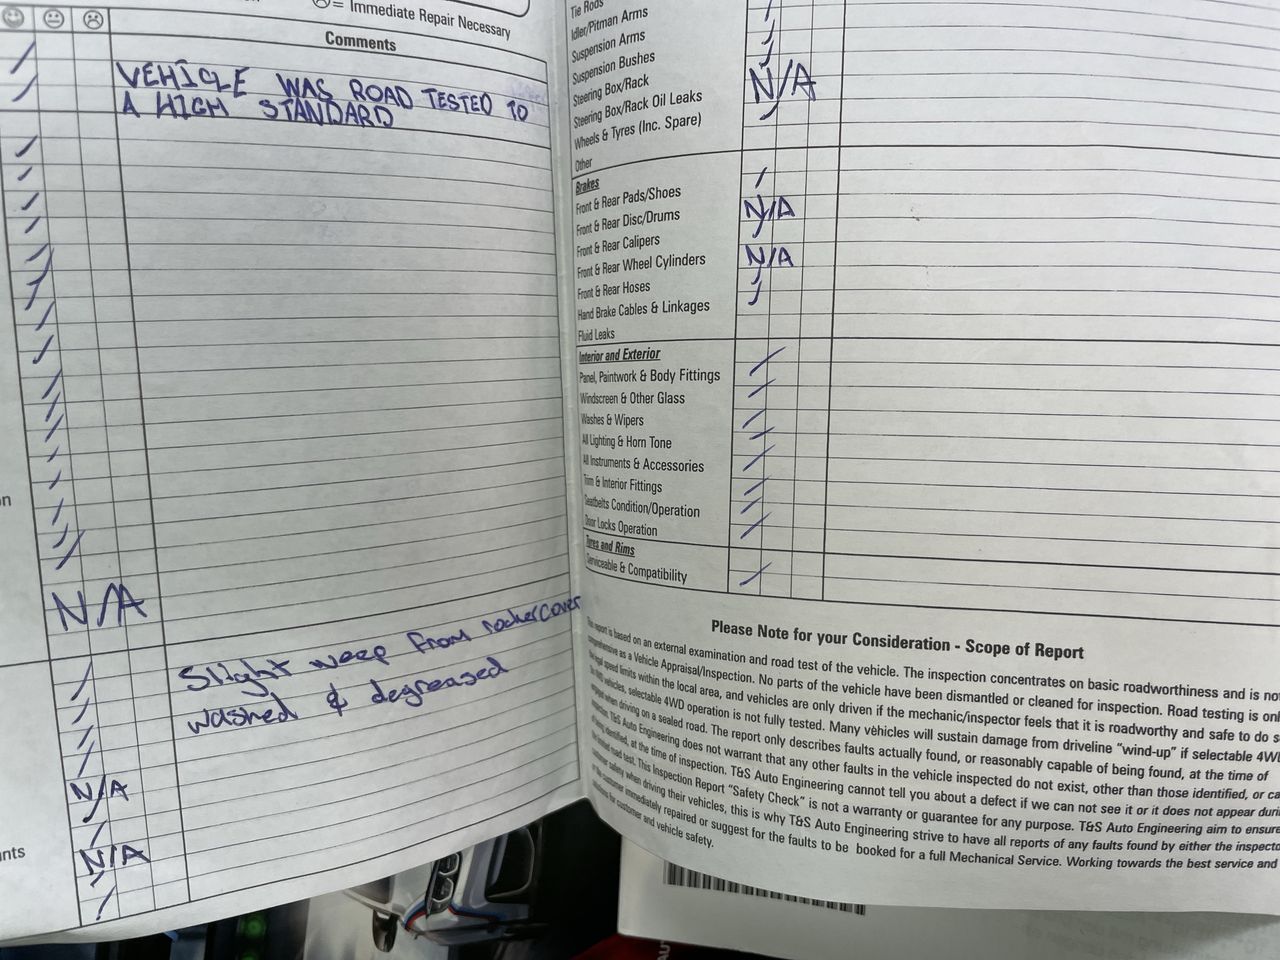 = Immediate Repair Necessary
Comments
VEHICLE WAS ROAD TESTED TO
A HIGH STANDARD
N/A
Slight weep from rocker cover
washed & degreased
N/A
N/A
Tie Rods
Idler/Pitman Arms
Suspension Arms
Suspension Bushes
Steering Box/Rack
Steering Box/Rack Oil Leaks
Wheels & Tyres (Inc. Spare)
Other
N/A
Brakes
Front & Rear Pads/Shoes
Front & Rear Disc/Drums
N/A
Front & Rear Calipers
Front & Rear Wheel Cylinders
N/A
Front & Rear Hoses
Hand Brake Cables & Linkages
Fluid Leaks
Interior and Exterior
Panel, Paintwork & Body Fittings
Windscreen & Other Glass
Washes & Wipers
All Lighting & Horn Tone
All Instruments & Accessories
Trim & Interior Fittings
Seatbelts Condition/Operation
Door Locks Operation
Tyres and Rims
Serviceable & Compatibility
Please Note for your Consideration - Scope of Report
This report is based on an external examination and road test of the vehicle. The inspection concentrates on basic roadworthiness and is not
comprehensive as a Vehicle Appraisal/Inspection. No parts of the vehicle have been dismantled or cleaned for inspection. Road testing is
legal speed limits within the local area, and vehicles are only driven if the mechanic/inspector feels that it is roadworthy and safe to do
vehicles, selectable 4WD operation is not fully tested. Many vehicles will sustain damage from driveline "wind-up" if selectable
when driving on a sealed road. The report only describes faults actually found, or reasonably capable of being found, at the time of
T&S Auto Engineering does not warrant that any other faults in the vehicle inspected do not exist, other than those identified, or
identified, at the time of inspection. T&S Auto Engineering cannot tell you about a defect if we can not see it or it does not appear
road test. This Inspection Report "Safety Check" is not a warranty or guarantee for any purpose. T&S Auto Engineering aim to ensure
safety when driving their vehicles, this is why T&S Auto Engineering strive to have all reports of any faults found by either the
customer immediately repaired or suggest for the faults to be booked for a full Mechanical Service. Working towards the best service and
for customer and vehicle safety.